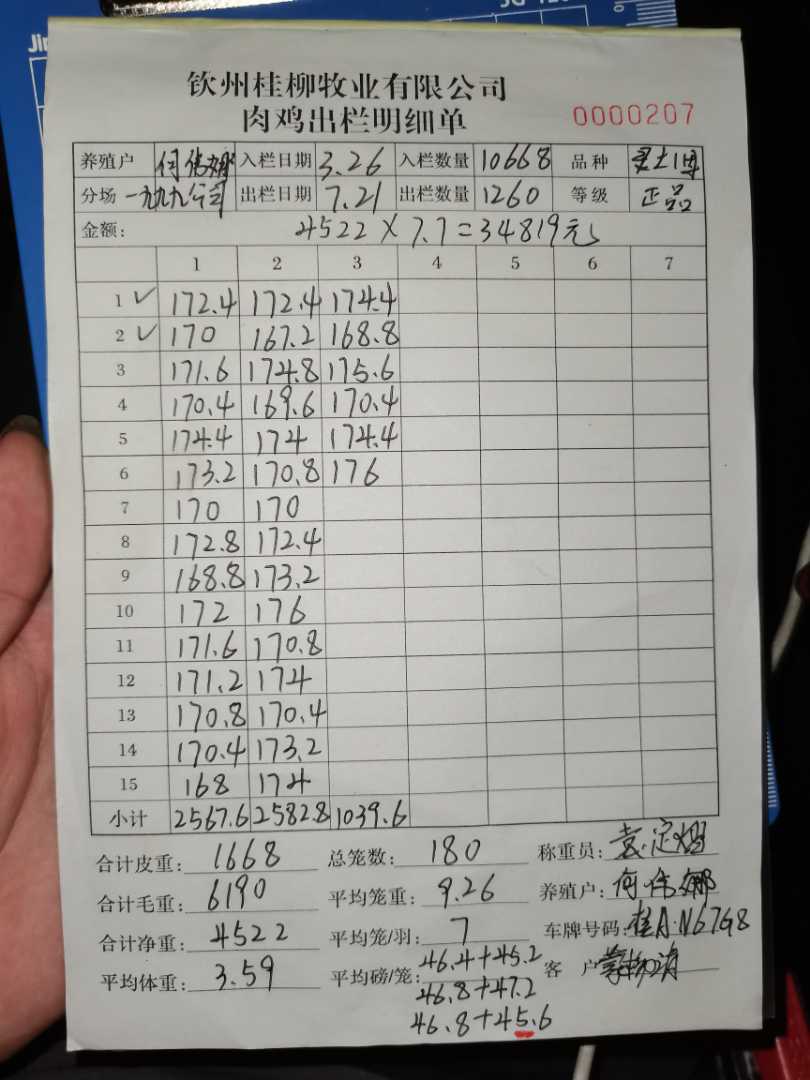 钦州桂柳牧业有限公司
肉鸡出栏明细单
0000207
养殖户 何伟娜 入栏日期 3.26 入栏数量 10668 品种
分场 一九九公司 出栏日期 7.21 出栏数量 1260 等级 正品
金额: 4522×7.7=34819元
1 2 3 4 5 6 7
1 ✓ 172.4 172.4 174.4
2 ✓ 170 167.2 168.8
3 171.6 174.8 175.6
4 170.4 169.6 170.4
5 174.4 174 174.4
6 173.2 170.8 176
7 170 170
8 172.8 172.4
9 168.8 173.2
10 172 176
11 171.6 170.8
12 171.2 174
13 170.8 170.4
14 170.4 173.2
15 168 174
小计 2567.6 2582.8 1039.6
合计皮重: 1668 总笼数: 180 称重员:
合计毛重: 6190 平均笼重: 9.26 养殖户: 何伟娜
合计净重: 4522 平均笼/羽: 7 车牌号码: 桂A·N67G8
平均体重: 3.59 平均磅/笼: 46.4+45.2 客户
46.8+47.2
46.8+45.6